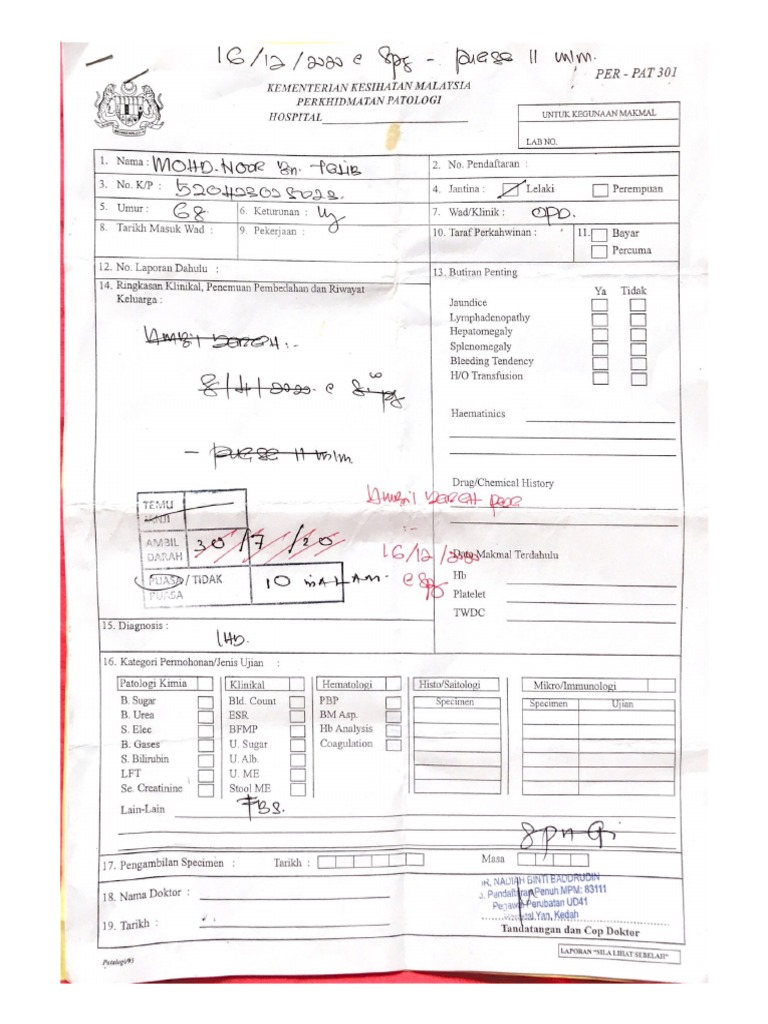 16/12/2020 @ 8pg - puasa 11 mlm.
PER - PAT 301
KEMENTERIAN KESIHATAN MALAYSIA
PERKHIDMATAN PATOLOGI
HOSPITAL
UNTUK KEGUNAAN MAKMAL
LAB NO.
1. Nama : MOHD. NOOR Bn. TALIB
2. No. Pendaftaran :
3. No. K/P :
4. Jantina : Lelaki Perempuan
5. Umur : 68
6. Keturunan :
7. Wad/Klinik : OPD.
8. Tarikh Masuk Wad :
9. Pekerjaan :
10. Taraf Perkahwinan :
11. Bayar
Percuma
12. No. Laporan Dahulu :
13. Butiran Penting
14. Ringkasan Klinikal, Penemuan Pembedahan dan Riwayat
Keluarga :
Ya Tidak
Jaundice
Lymphadenopathy
Hepatomegaly
Splenomegaly
Bleeding Tendency
H/O Transfusion
Haematinics
Ambil DARAH :-
- puasa 11 mlm.
Drug/Chemical History
Ambil DARAH
:-
16/12/2020
@ 8pg
TEMU
JANJI
AMBIL
DARAH
30/7/20
PUASA / TIDAK
PUASA
10 MALAM.
Data Makmal Terdahulu
Hb
Platelet
TWDC
15. Diagnosis :
IHD.
16. Kategori Permohonan/Jenis Ujian :
Patologi Kimia
B. Sugar
B. Urea
S. Elec
B. Gases
S. Bilirubin
LFT
Se. Creatinine
Klinikal
Bld. Count
ESR
BFMP
U. Sugar
U. Alb.
U. ME
Stool ME
Hematologi
PBP
BM Asp.
Hb Analysis
Coagulation
Histo/Saitologi
Specimen
Mikro/Immunologi
Specimen Ujian
Lain-Lain
FBS.
17. Pengambilan Specimen : Tarikh :
Masa
18. Nama Doktor :
19. Tarikh :
DR. NADIAH BINTI BADDRUDIN
No. Pendaftaran Penuh MPM: 83111
Pegawai Perubatan UD41
Hospital Yan, Kedah
Tandatangan dan Cop Doktor
LAPORAN "SILA LIHAT SEBELAH"
Patologi/95